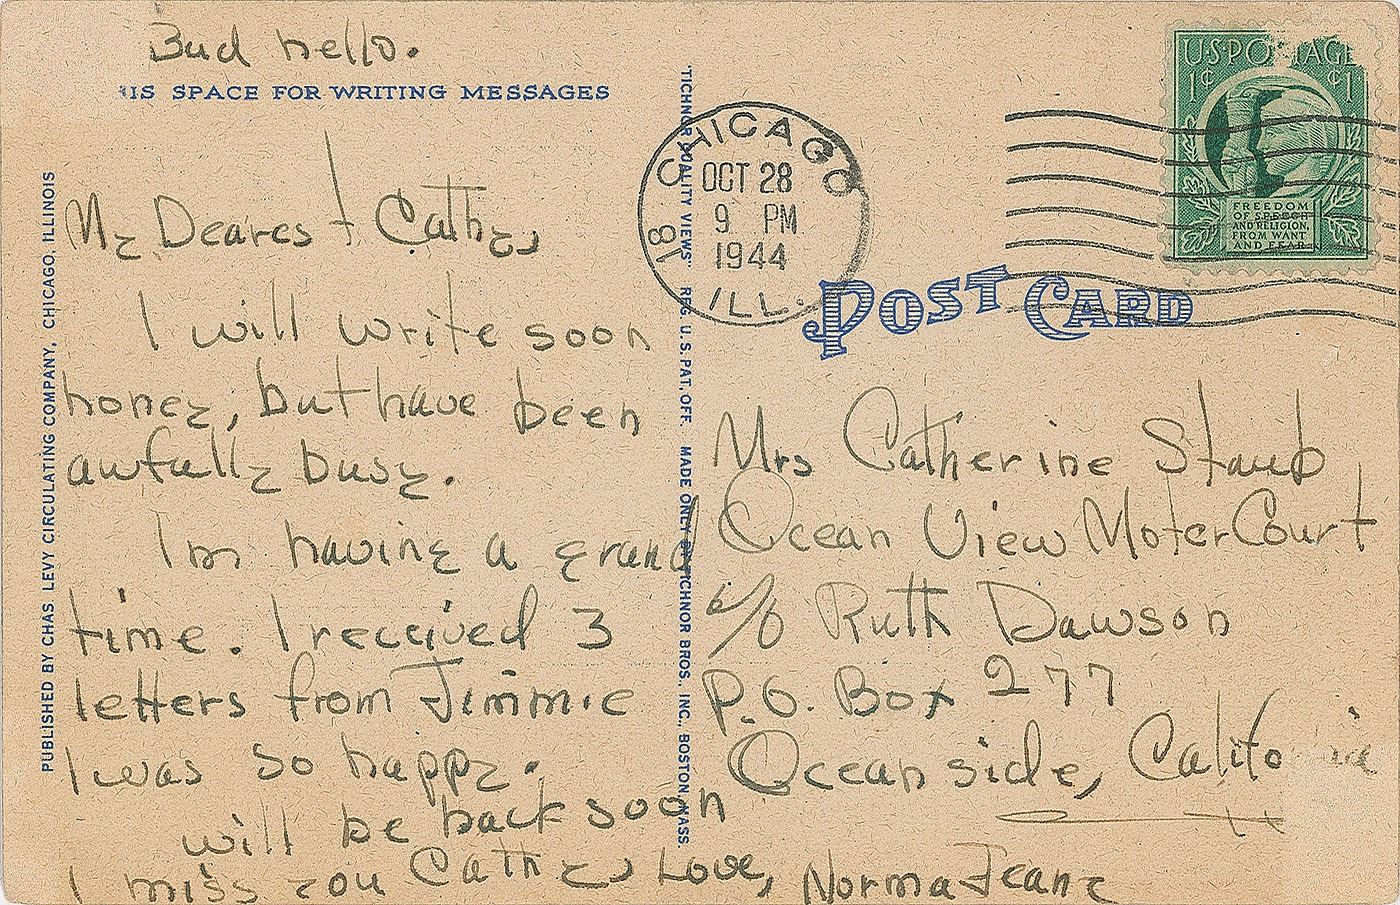 Bud hello.
IS SPACE FOR WRITING MESSAGES
My Dearest Cathy,
I will write soon
honey, but have been
awfully busy.
Im having a grand
time. I received 3
letters from Jimmie
I was so happy.
will be back soon
I miss you Cathy, Love, Norma Jeane
PUBLISHED BY CHAS LEVY CIRCULATING COMPANY, CHICAGO, ILLINOIS
"TICHNOR QUALITY VIEWS" REG. U.S. PAT. OFF. MADE ONLY BY TICHNOR BROS., INC., BOSTON, MASS.
CHICAGO
OCT 28
9 PM
1944
ILL.
18
U.S. POSTAGE
1¢ ¢1
FREEDOM
OF SPEECH
AND RELIGION,
FROM WANT
AND FEAR
POST CARD
Mrs Catherine Staub
Ocean View Moter Court
c/o Ruth Dawson
P.O. Box 277
Oceanside, California